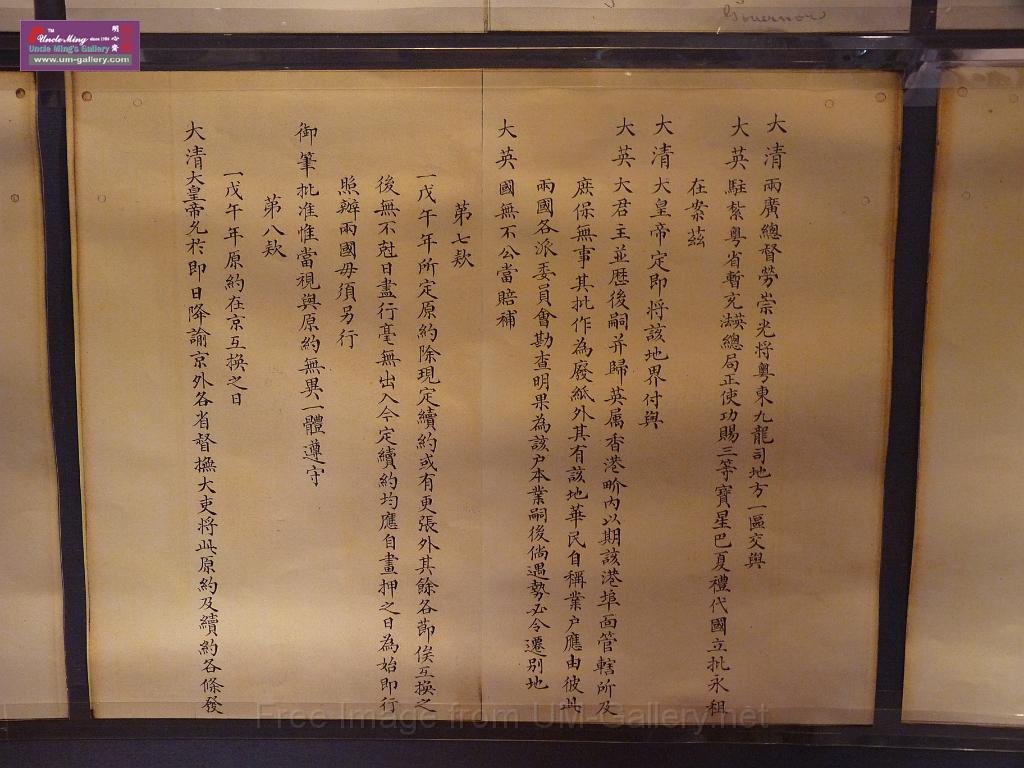 Governor
大清兩廣總督勞崇光将粤東九龍司地方一區交與
大英駐紮粤省暫充英法總局正使功賜三等寶星巴夏禮代國立批永租
在案茲
大清大皇帝定即将該地界付與
大英大君主並歷後嗣并歸英属香港界内以期該港埠面管轄所及
庶保無事其批作為廢紙外其有該地華民自稱業户應由彼此
兩國各派委員會勘查明果為該户本業嗣後倘遇勢必令遷别地
大英國無不公當賠補
第七欵
一戊午年所定原約除現定續約或有更張外其餘各節俟互換之
後無不尅日盡行毫無出入今定續約均應自畫押之日為始即行
照辦兩國毋須另行
御筆批准惟當視與原約無異一體遵守
第八欵
一戊午年原約在京互換之日
大清大皇帝允於即日降諭京外各省督撫大吏将此原約及續約各條發
TM
Uncle Ming since 1986
明心齋
Uncle Ming's Gallery
www.um-gallery.com
Free Image from UM-Gallery.net